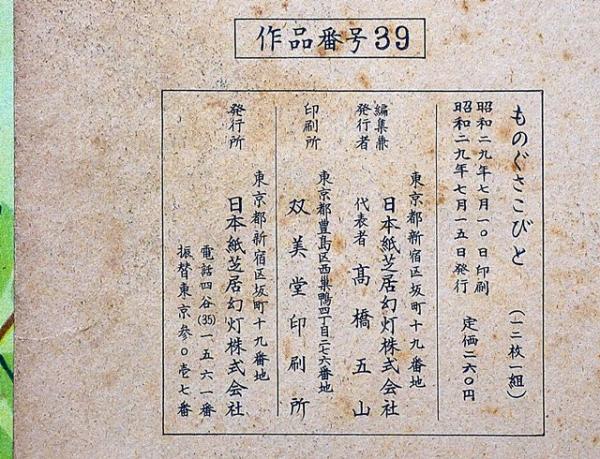 作品番号39
ものぐさこびと (一二枚一組)
昭和二九年七月一〇日印刷
昭和二九年七月一五日発行 定価二六〇円
東京都新宿区坂町十九番地
編集兼発行者 日本紙芝居幻灯株式会社
代表者 高橋五山
東京都豊島区西巣鴨四丁目二七六番地
印刷所 双美堂印刷所
東京都新宿区坂町十九番地
発行所 日本紙芝居幻灯株式会社
電話四谷(35)一五六一番
振替東京参〇壱七番